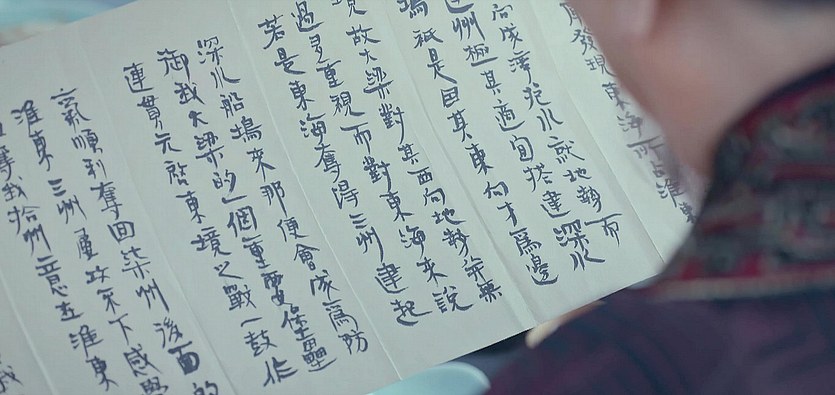 發現東海所占淮
向成灣抱水就地勢而
州極其適宜搭建深水
塢祇是因其東向才爲邊
境故大梁對其西向地勢並無
過多重視而對東海來說
若是東海奪得三州建起
深水船塢來那便會成爲防
御我大梁的一個重要堡壘
連貫元啓東境之戰一鼓作
氣順利奪回柒州後面的
淮東三州屢攻不下感覺
奪我拾州意在淮東
我